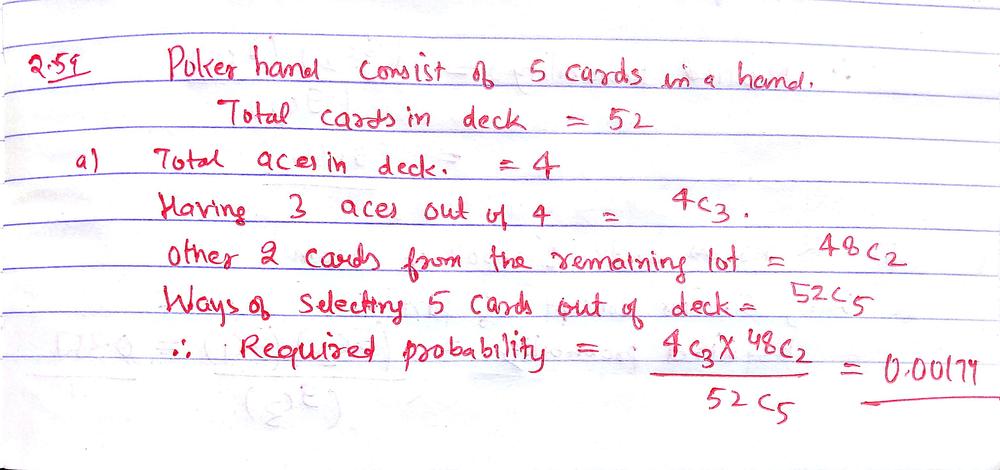 2.59 Poker hand consist of 5 cards in a hand.
Total cards in deck = 52
a) Total aces in deck. = 4
Having 3 aces out of 4 = 4C3.
Other 2 cards from the remaining lot = 48C2
Ways of selecting 5 cards out of deck = 52C5
∴ Required probability = 4C3 X 48C2 / 52C5 = 0.00174